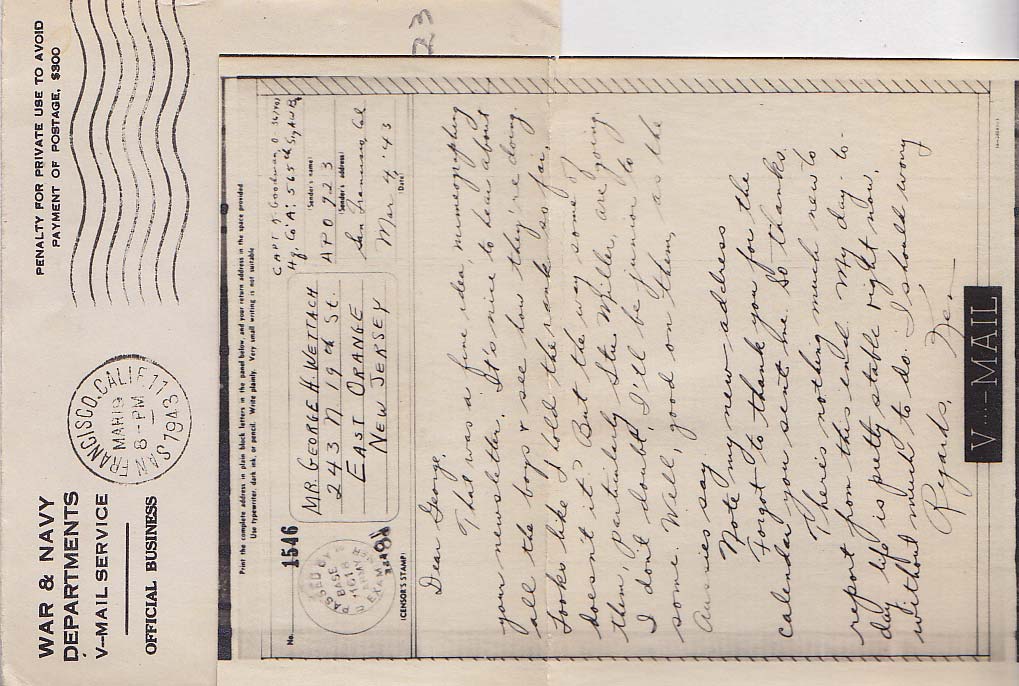 WAR & NAVY
DEPARTMENTS
V-MAIL SERVICE
OFFICIAL BUSINESS
SAN FRANCISCO, CALIF. 11
MAR 19
8-PM
1943
PENALTY FOR PRIVATE USE TO AVOID
PAYMENT OF POSTAGE, $300
23
Print the complete address in plain block letters in the panel below, and your return address in the space provided
Use typewriter, dark ink, or pencil. Write plainly. Very small writing is not suitable
No. 1546
PASSED BY
BASE
1618
EXAMINER
ARMY
(CENSOR'S STAMP)
MR. GEORGE H. WETTACH
243 N 19th St.
EAST ORANGE
NEW JERSEY
CAPT J. Goodman, O
Hq. Co "A": 565th
(Sender's name)
APO 923
(Sender's address)
San Francisco, Cal
Mar. 4, '43
(Date)
Dear George,
That was a fine idea, mimeographing
your newsletter. It's nice to hear about
all the boys & see how they're doing.
Looks like I hold the rank so far,
doesn't it? But the way some of
them, particularly Stu Miller, are going,
I don't doubt I'll be junior to
some. Well, good on them, as the
Aussies say.
Note my new address
Forgot to thank you for the
calendar you sent me. So thanks.
There's nothing much new to
report from this end. My day-to-
day life is pretty stable right now,
without much to do. I should worry
Regards,
V···–MAIL